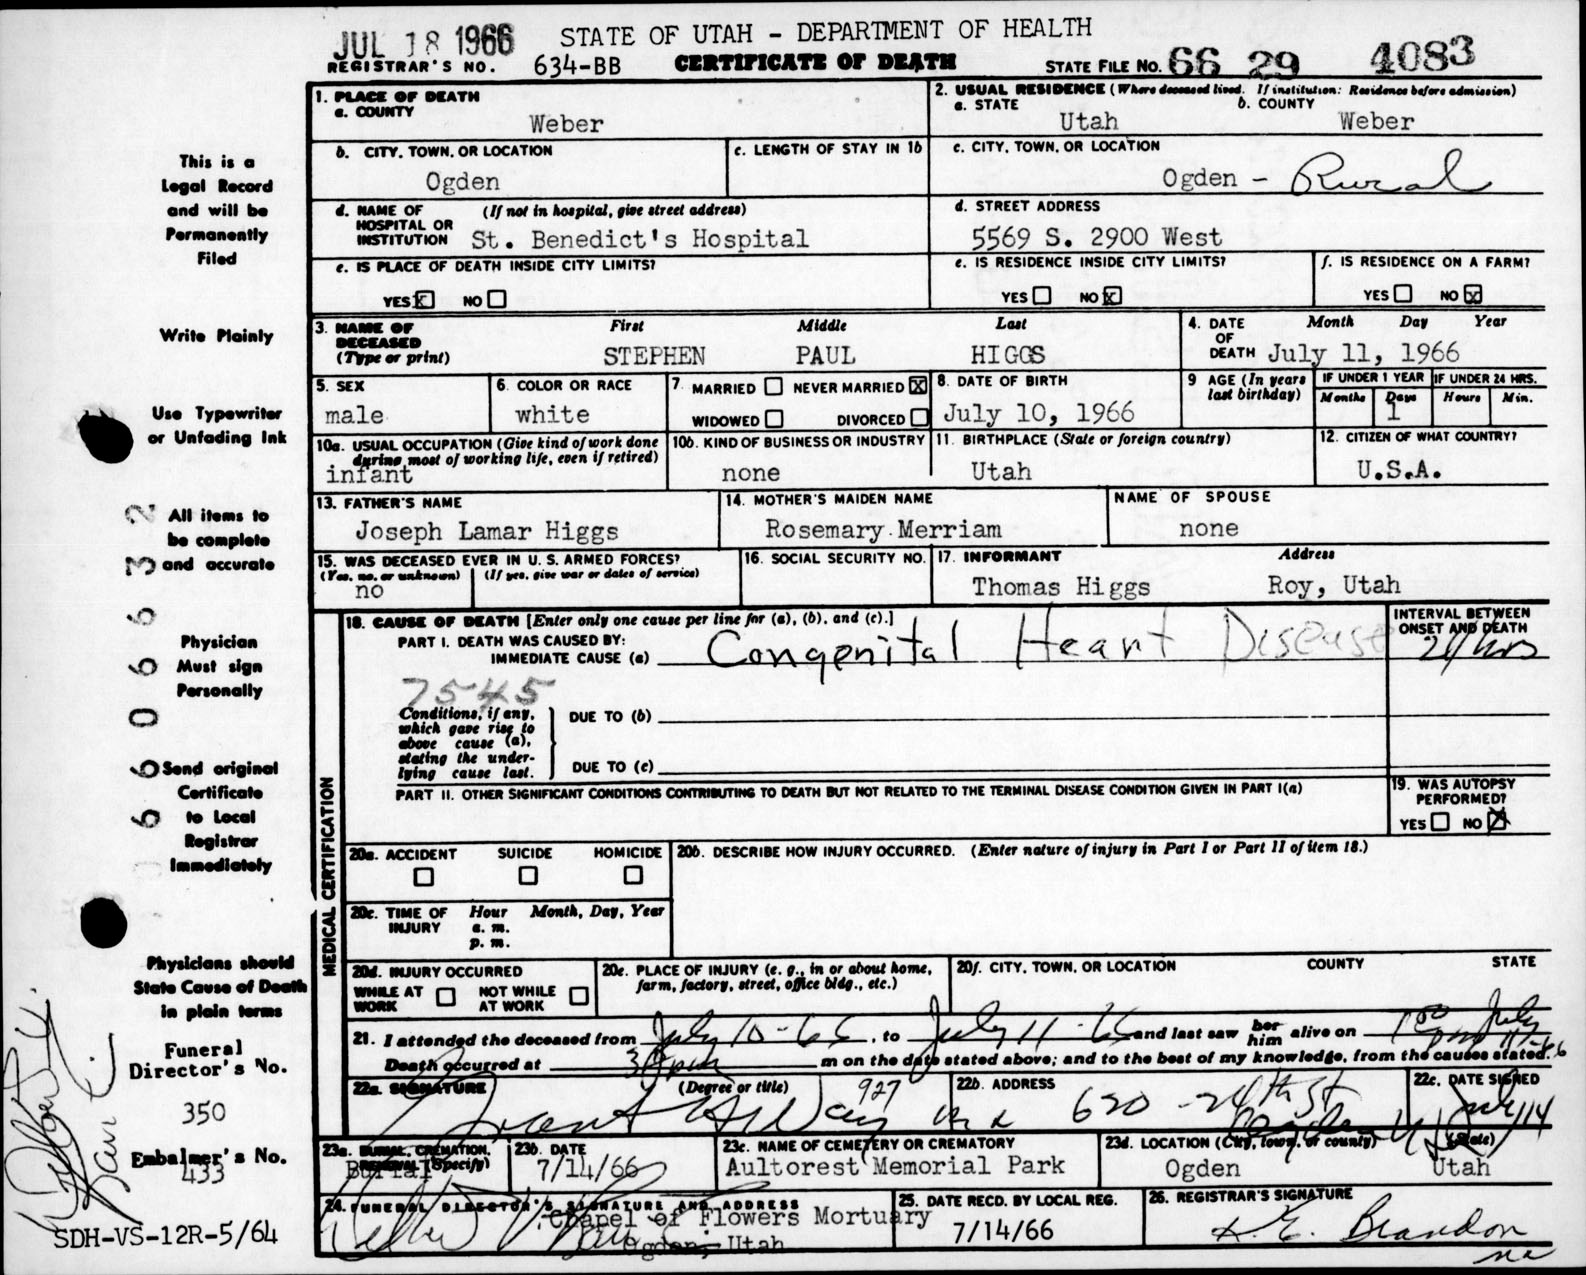 JUL 18 1966 STATE OF UTAH - DEPARTMENT OF HEALTH
REGISTRAR'S NO. 634-BB CERTIFICATE OF DEATH STATE FILE NO. 66 29 4083
1. PLACE OF DEATH
a. COUNTY
Weber
2. USUAL RESIDENCE (Where deceased lived. If institution: Residence before admission)
a. STATE b. COUNTY
Utah Weber
b. CITY, TOWN, OR LOCATION
Ogden
c. LENGTH OF STAY IN 1b
c. CITY, TOWN, OR LOCATION
Ogden - Rural
d. NAME OF (If not in hospital, give street address)
HOSPITAL OR
INSTITUTION St. Benedict's Hospital
d. STREET ADDRESS
5569 S. 2900 West
e. IS PLACE OF DEATH INSIDE CITY LIMITS?
YES X NO
e. IS RESIDENCE INSIDE CITY LIMITS?
YES NO X
f. IS RESIDENCE ON A FARM?
YES NO X
3. NAME OF DECEASED (Type or print)
First Middle Last
STEPHEN PAUL HIGGS
4. DATE OF DEATH Month Day Year
July 11, 1966
5. SEX
male
6. COLOR OR RACE
white
7. MARRIED NEVER MARRIED X
WIDOWED DIVORCED
8. DATE OF BIRTH
July 10, 1966
9 AGE (In years last birthday)
IF UNDER 1 YEAR IF UNDER 24 HRS.
Months Days Hours Min.
1
10a. USUAL OCCUPATION (Give kind of work done
during most of working life, even if retired)
infant
10b. KIND OF BUSINESS OR INDUSTRY
none
11. BIRTHPLACE (State or foreign country)
Utah
12. CITIZEN OF WHAT COUNTRY?
U.S.A.
13. FATHER'S NAME
Joseph Lamar Higgs
14. MOTHER'S MAIDEN NAME
Rosemary Merriam
NAME OF SPOUSE
none
15. WAS DECEASED EVER IN U. S. ARMED FORCES?
(Yes, no, or unknown) (If yes, give war or dates of service)
no
16. SOCIAL SECURITY NO.
17. INFORMANT Address
Thomas Higgs Roy, Utah
MEDICAL CERTIFICATION
18. CAUSE OF DEATH [Enter only one cause per line for (a), (b), and (c).]
PART I. DEATH WAS CAUSED BY:
IMMEDIATE CAUSE (a) Congenital Heart Disease
INTERVAL BETWEEN
ONSET AND DEATH
7545
Conditions, if any,
which gave rise to
above cause (a),
stating the under-
lying cause last.
DUE TO (b)
DUE TO (c)
PART II. OTHER SIGNIFICANT CONDITIONS CONTRIBUTING TO DEATH BUT NOT RELATED TO THE TERMINAL DISEASE CONDITION GIVEN IN PART I(a)
19. WAS AUTOPSY
PERFORMED?
YES NO X
20a. ACCIDENT SUICIDE HOMICIDE
20b. DESCRIBE HOW INJURY OCCURRED. (Enter nature of injury in Part I or Part II of item 18.)
20c. TIME OF INJURY Hour Month, Day, Year
a. m.
p. m.
20d. INJURY OCCURRED
WHILE AT WORK NOT WHILE AT WORK
20e. PLACE OF INJURY (e. g., in or about home,
farm, factory, street, office bldg., etc.)
20f. CITY, TOWN, OR LOCATION COUNTY STATE
21. I attended the deceased from July 10-66, to July 11-66 and last saw her him alive on
Death occurred at m on the date stated above; and to the best of my knowledge, from the causes stated.
22a. SIGNATURE (Degree or title) 927
22b. ADDRESS
620 - 24th St
22c. DATE SIGNED
July 14
23a. BURIAL, CREMATION, REMOVAL (Specify)
Burial
23b. DATE
7/14/66
23c. NAME OF CEMETERY OR CREMATORY
Aultorest Memorial Park
23d. LOCATION (City, town, or county) (State)
Ogden Utah
24. FUNERAL DIRECTOR'S SIGNATURE AND ADDRESS
Chapel of Flowers Mortuary
Ogden, Utah
25. DATE RECD. BY LOCAL REG.
7/14/66
26. REGISTRAR'S SIGNATURE
Brandon
This is a
Legal Record
and will be
Permanently
Filed
Write Plainly
Use Typewriter
or Unfading Ink
All items to
be complete
and accurate
Physician
Must sign
Personally
Send original
Certificate
to Local
Registrar
Immediately
Physicians should
State Cause of Death
in plain terms
Funeral
Director's No.
350
Embalmer's No.
433
SDH-VS-12R-5/64